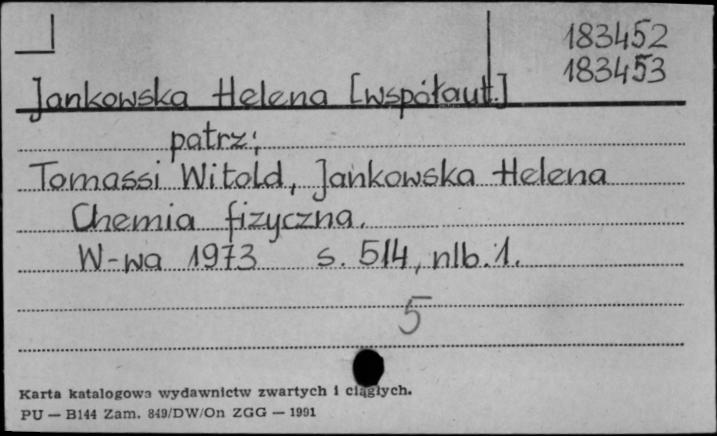 183452
183453
Jankowska Helena [współaut.]
patrz:
Tomassi Witold, Jankowska Helena
Chemia fizyczna.
W-wa 1973 s. 514, nlb. 1.
5
Karta katalogowa wydawnictw zwartych i ciągłych.
PU — B144 Zam. 849/DW/On ZGG — 1991